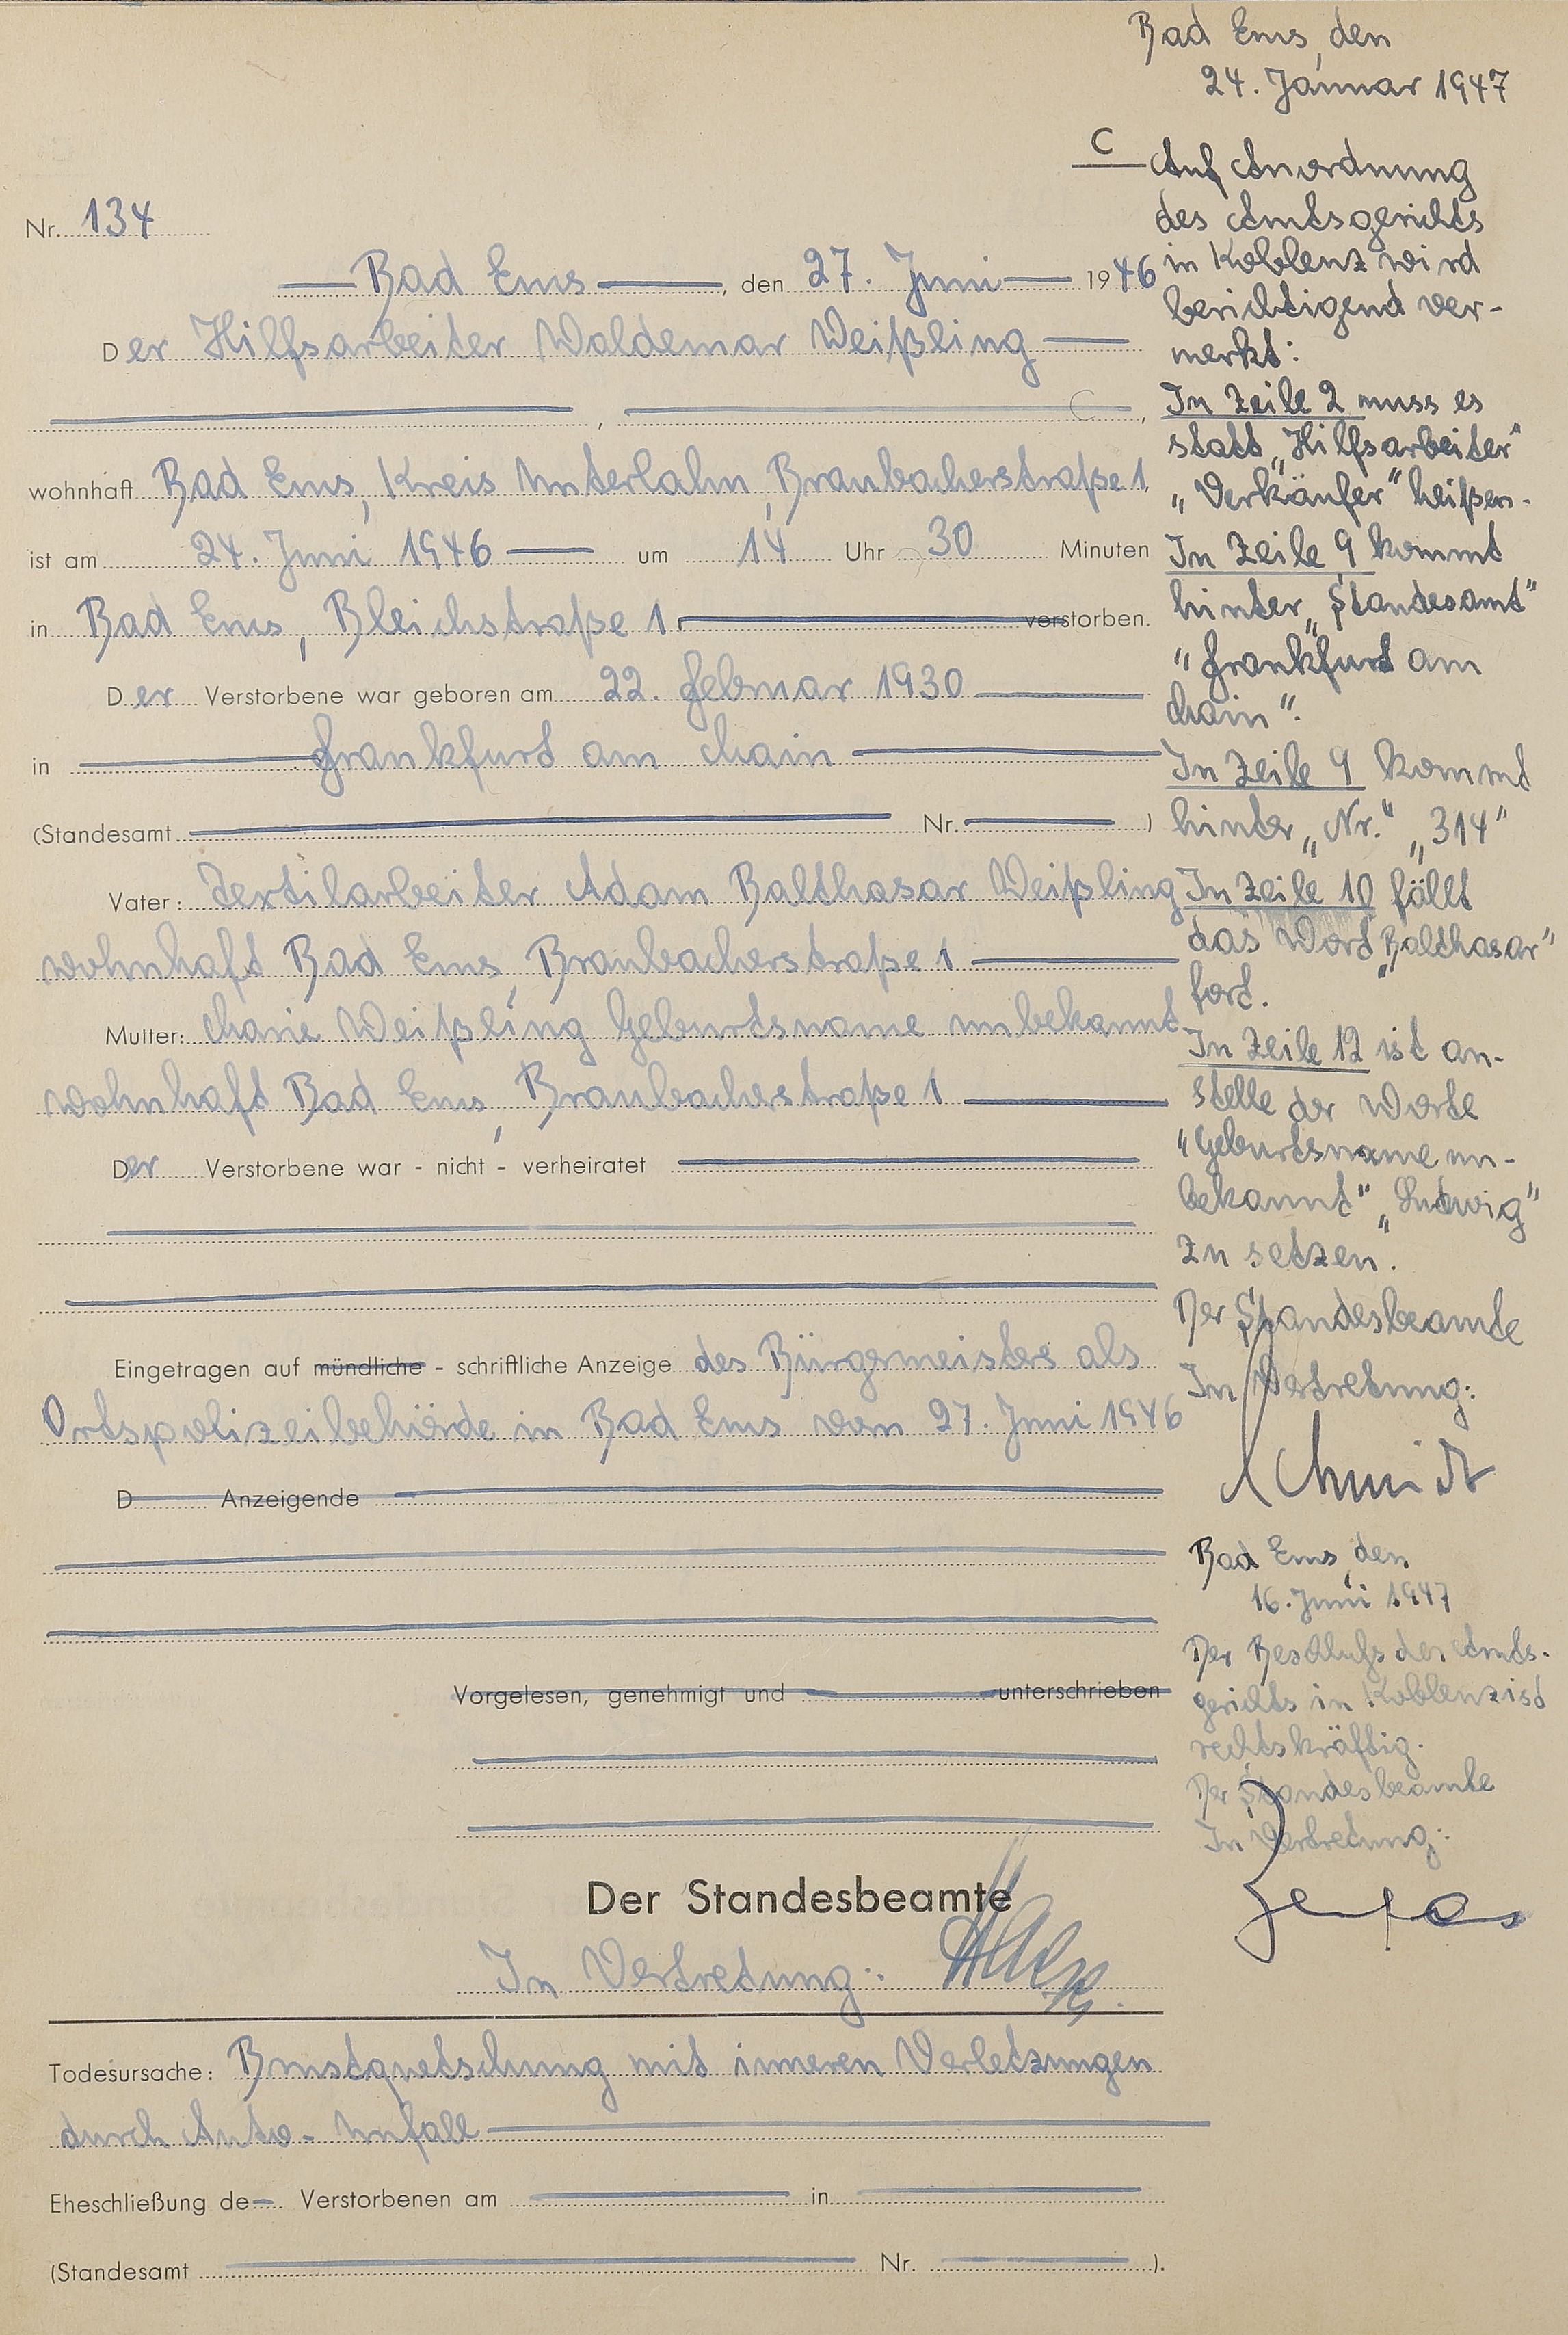 Nr. 134
Bad Ems, den 27. Juni 1946
Der Hilfsarbeiter Waldemar Weißling
wohnhaft Bad Ems, Kreis Unterlahn, Braubacherstraße 1,
ist am 24. Juni 1946 um 14 Uhr 30 Minuten
in Bad Ems, Bleichstraße 1 verstorben.
Der Verstorbene war geboren am 22. Februar 1930
in Frankfurt am Main
(Standesamt Nr. )
Vater: Textilarbeiter Adam Balthasar Weißling
wohnhaft Bad Ems, Braubacherstraße 1
Mutter: Marie Weißling Geburtsname unbekannt
wohnhaft Bad Ems, Braubacherstraße 1
Der Verstorbene war - nicht - verheiratet
Eingetragen auf mündliche - schriftliche Anzeige des Bürgermeisters als
Ortspolizeibehörde in Bad Ems vom 27. Juni 1946
D Anzeigende
Vorgelesen, genehmigt und unterschrieben
Der Standesbeamte
In Vertretung:
Todesursache: Brustquetschung mit inneren Verletzungen
durch Auto-Unfall
Eheschließung de Verstorbenen am in
(Standesamt Nr. ).
Bad Ems, den
24. Januar 1947
C Auf Anordnung
des Amtsgerichts
in Koblenz wird
berichtigend ver-
merkt:
In Zeile 2 muss es
statt „Hilfsarbeiter"
„Verkäufer" heißen.
In Zeile 9 kommt
hinter „Standesamt"
„Frankfurt am
Main".
In Zeile 9 kommt
hinter „Nr." „314"
In Zeile 10 fällt
das Wort „Balthasar"
fort.
In Zeile 12 ist an-
stelle der Worte
„Geburtsname un-
bekannt" „Ludwig"
zu setzen".
Der Standesbeamte
In Vertretung:
Schmidt
Bad Ems, den
16. Juni 1947
Der Beschluß des Amts-
gerichts in Koblenz ist
rechtskräftig.
Der Standesbeamte
In Vertretung: